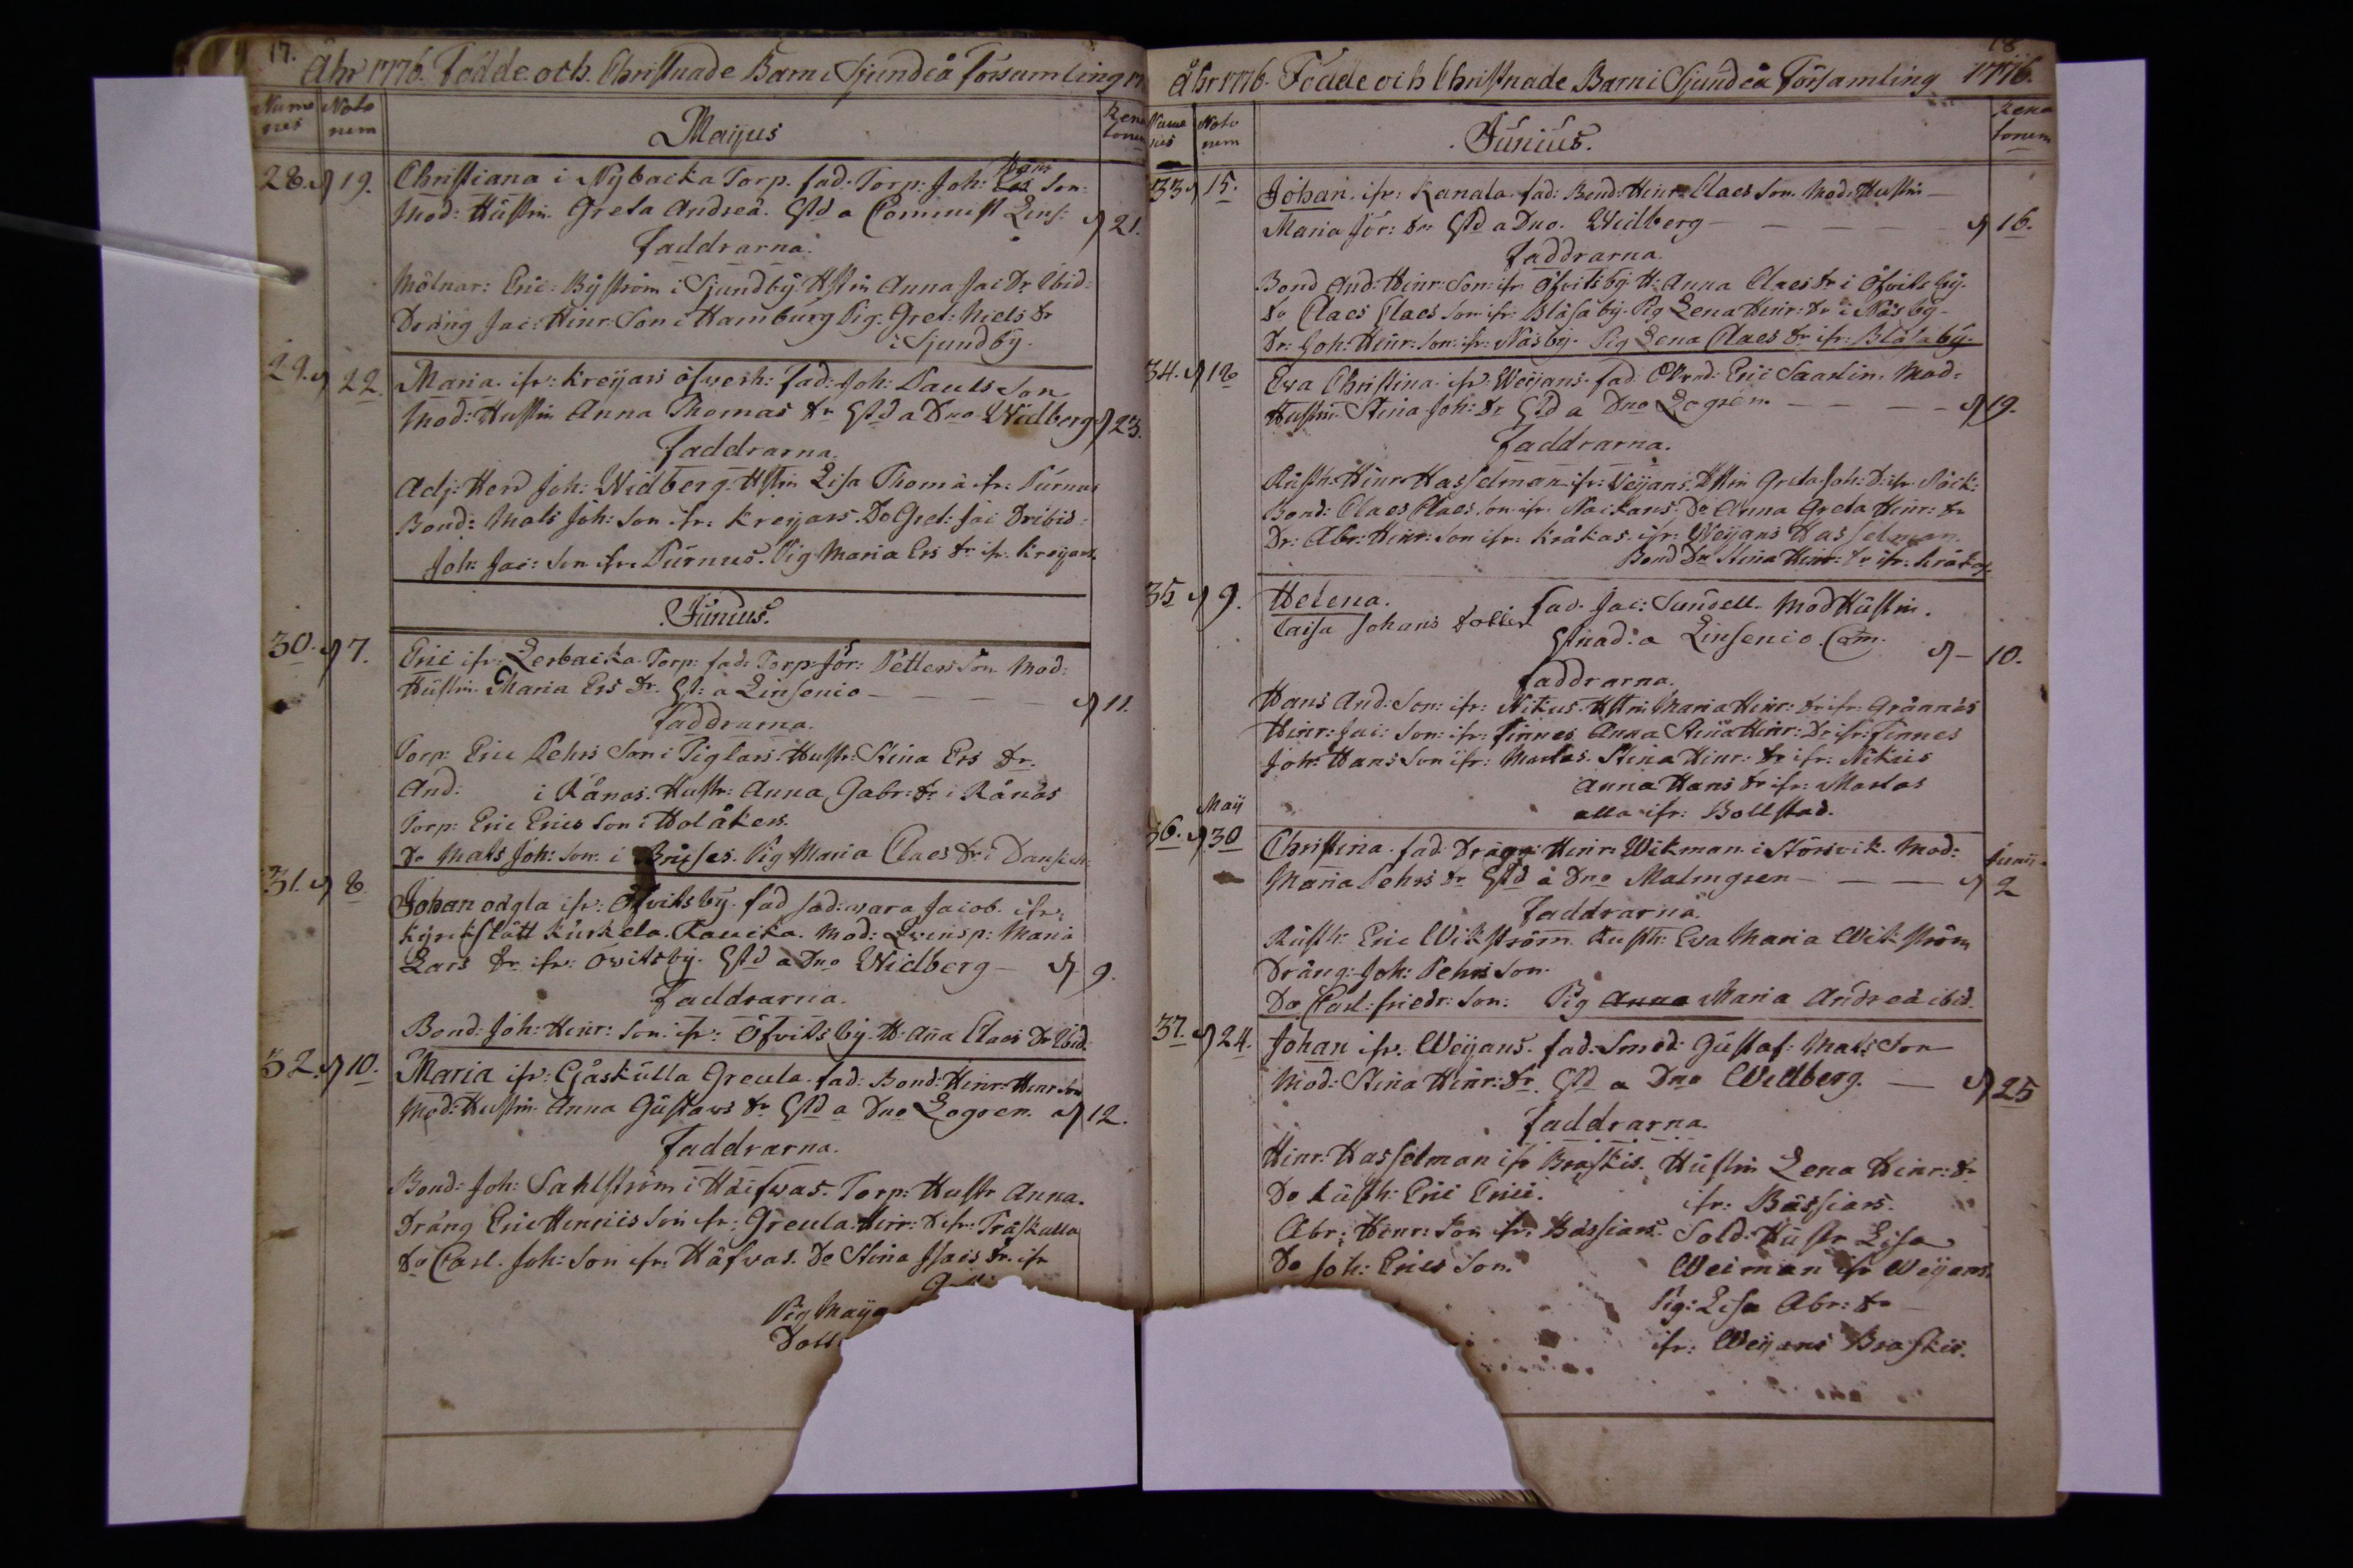 17.
Åhr 1776. Födde och Christnade Barn i Sjundeå Församling
Nume
nus
Nato
rum
Maijus
Rena
torum
28. d 19. Christiana i Nybacka Torp. fad: Torp: Joh: Son:
Mod: Hustrun Greta Andreæ. Gstd a Commist Lins: d 21.
Faddrarna.
Mölnar: Eric: Byström i Sjundby Hstrn Anna Jac Dr Ibid:
Dräng Jac: Hinr: Son i Hamburg Pig: Gret: Niels Dr
i Sjundby.
29. d 22. Maria ifr: Kreijars öfwerh: Fad: Joh: Pauls Son
Mod: Hustrun Anna Thomas Dr Gstd a Dno Widberg d 23.
Faddrarna.
Adj: Herr Joh: Widberg. Hstrn Lisa Thomæ ifr: Purnus
Bond: Mats Joh: Son ifr: Kreijars. Do Gret: Jac Dr ibid:
Joh: Jac: Son ifr: Purnus. Pig Maria Ers Dr ifr: Kreijars.
Junius.
30. d 7. Eric ifr: Lerbacka Torp: fad: Torp: Jör: Petters Son Mod:
Hustrun Maria Ers Dr. Gst: a Linsenio d 11.
Faddrarna.
Torp: Eric Pehrs Son i Piglars. Hustr: Stina Ers Dr.
And: i Rånäs. Hustr: Anna Gabr: Dr i Rånäs
Torp: Eric Erics Son i Holåkers.
Do Mats Joh: Son i Brijses. Pig Maria Claes Dr i
31. d 8. Johan oägta ifr: Öfvitsby. fad sad: wara Jacob ifr:
Kyrckslätt Kurkela. Mod: Maria
Lars Dr ifr: Övitsby. Gstd a Dno Widberg d 9.
Faddrarna.
Bond: Joh: Hinr: Son ifr: Öfvitsby. H: Anna Claes Dr Ibid.
32. d 10. Maria ifr: Gåskulla Greula. fad: Bond: Hinr: Hinr Son
Mod: Hustrun Anna Gustavs Dr Gstd a Dno Logren. d 12.
Faddrarna.
Bond: Joh: Sahlström i Häfwas. Torp: Hustr Anna.
Dräng Eric Henrics Son ifr: Greula. Hinr: D ifr: Träskulla
Do Carl. Joh: Son ifr: Häfvas. Do Stina Isacs Dr. ifr
Pig Maija
Dott
18.
Åhr 1776. Födde och Christnade Barn i Sjundeå Församling 1776.
Nume
nus
Nato
rum
Junius.
Rena
torum
33 d 15. Johan. ifr: Kanala. fad: Bond: Hinr: Claes Son. Mod: Hustrun
Maria Jör: Dr Gstd a Dno. Widberg d 16.
Faddrarna.
Bond And: Hinr: Son: ifr Öfvitsby H: Anna Claes Dr i Öfvitsby.
Do Claes Claes Son ifr: Blåsaby. Pig Lena Hinr: Dr i Näsby
Dr: Joh: Hinr: Son: ifr: Näsby. Pig Lena Claes Dr ifr: Blåsaby.
34. d 18 Eva Christina. ifr: Weijans. fad: Eric Saarlin. Mod:
Hustrun Stina Joh: Dr Gstd a Dno Logren d 19.
Faddrarna.
Rusth: Hinr Hasselman ifr: Veijans. Hstrn Greta Joh: D: ifr
Bond: Claes Claes Son ifr. Nackans. Do Anna Greta Hinr: Dr
Dr: Abr: Hinr: Son ifr: Kråkas. ifr: Weijans Hasselman.
Bond Dr Stina Hinr: Dr ifr: Kråkas.
35 d 9. Helena. fad. Jac: Sundell. Mod Hustrun.
Caisa Johans Dotter Gstnad: a Linsenio. Com. d 10.
Faddrarna.
Hans And: Son: ifr: Nikus. Hstrn Maria Hinr: Dr ifr: Grånäs
Hinr: Jac: Son: ifr: Finnes. Anna Stina Hinr: Dr ifr: Finnes
Joh: Hans Son ifr: Martas. Stina Hinr: Dr ifr: Nikus
Anna Hans Dr ifr: Martas
alla ifr: Bollstad.
Maij
36. d 30 Christina. fad Dräng: Hinr: Wikman i Störsvik. Mod: Junij
Maria Pehrs Dr Gstd a Dno Malmgren d 2
Faddrarna.
Rusth: Eric Wikström. Rusth: Eva Maria Wikström
Dräng: Joh: Pehrs Son.
Do Carl: Friedr: Son: Pig Anna Maria Andreæ ibid.
37. d 24. Johan ifr. Weijans. fad: Smed: Gustaf: Mats Son
Mod: Stina Hinr: Dr. Gstd a Dno Widberg. d 25
Faddrarna.
Hinr: Hasselman ifr Braskis. Hustrun Lena Hinr: Dr
Do Rusth: Eric Erici. ifr: Bässiars.
Abr: Hinr: Son ifr: Bässiars. Sold: Hustr Lisa
Do Joh: Erics Son. Weiman ifr Weijans.
Pig: Lisa Abr: Dr
ifr: Weijans Braskis.